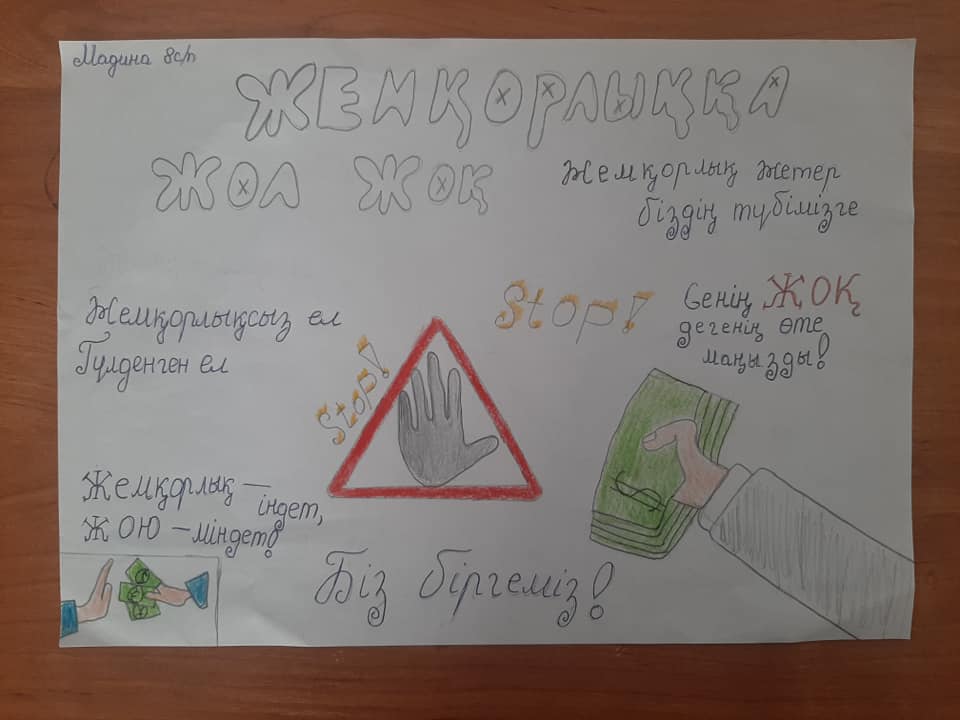 Мадина 8с/п
ЖЕМҚОРЛЫҚҚА
ЖОЛ ЖОҚ
Жемқорлық жетер
біздің түбімізге
Stop!
Сенің ЖОҚ
дегенің өте
маңызды!
Жемқорлықсыз ел
Гүлденген ел
Stop!
$
Жемқорлық —
індет,
ЖОЮ — міндет!
Біз біргеміз!